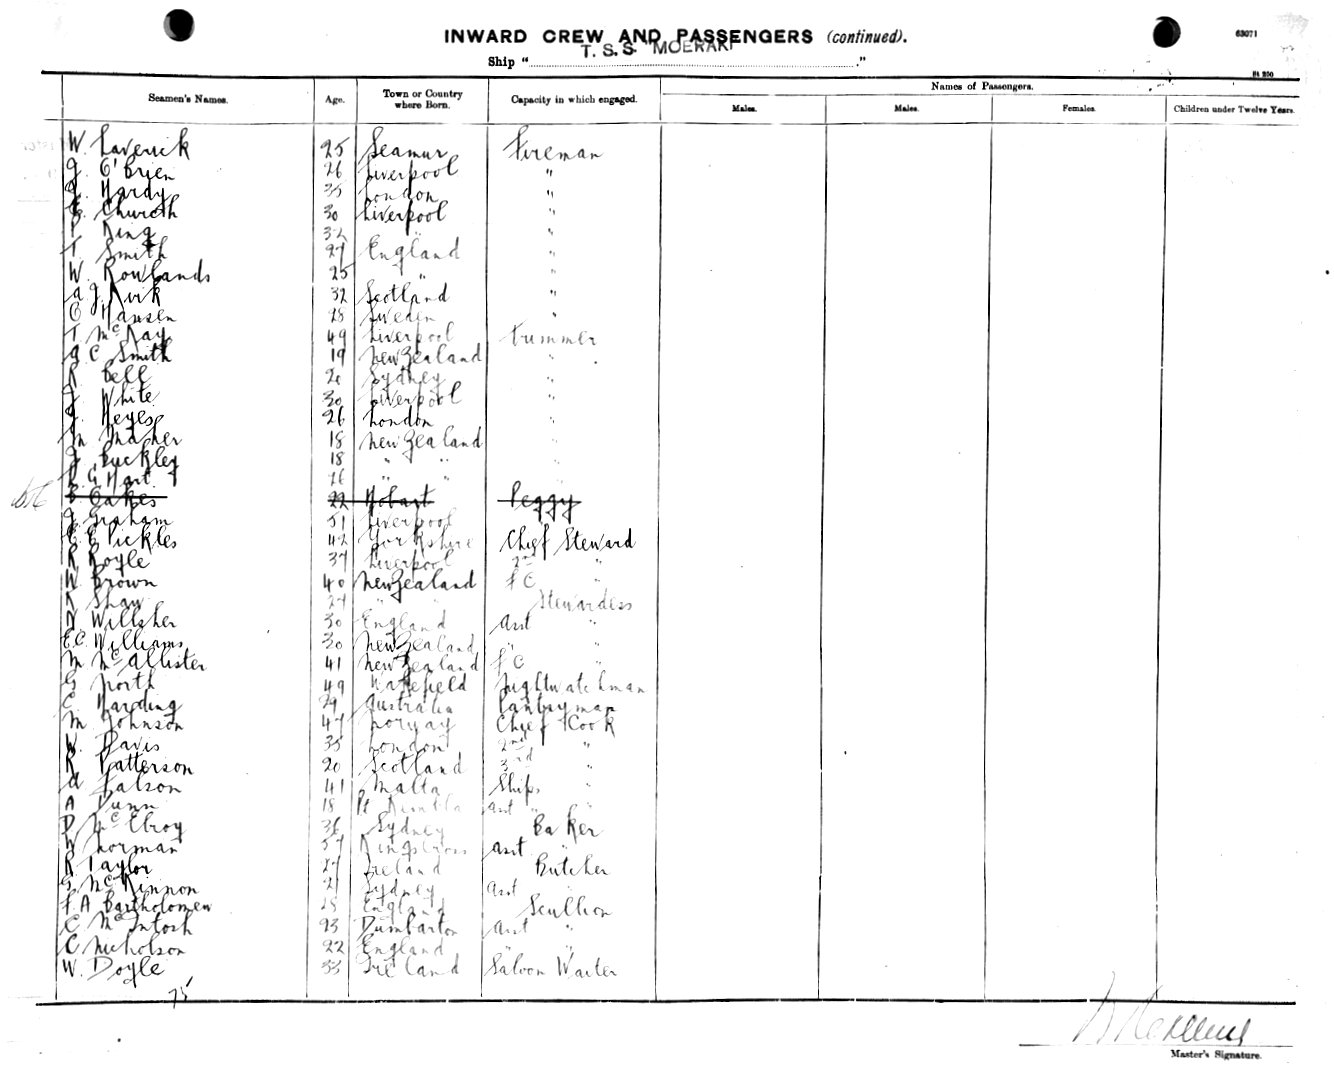 63071
INWARD CREW AND PASSENGERS (continued).
T. S. S. "MOERAKI
Ship " ."
Seamen's Names. Age. Town or Country where Born. Capacity in which engaged. Names of Passengers.
Males. Males. Females. Children under Twelve Years.
W. Laverick 25 Seamur Fireman
J. O'Brien 26 Liverpool "
Hardy 35 London "
Church 30 Liverpool "
King 32 " "
T. Smith 27 England "
W. Rowlands 25 " "
A J. Kirk 32 Scotland "
C Hansen 28 Sweden "
T McKay 49 Liverpool Trimmer
G C Smith 19 New Zealand "
R Bell 20 Sydney "
J White 30 Liverpool "
J. Keyes 26 London "
M Maher 18 New Zealand "
J Buckley 18 " " "
R G Hart 26 " " "
Oakes 22 Hobart Peggy
J. Graham 51 Liverpool
C E Pickles 42 Yorkshire Chief Steward
R Royle 37 Liverpool 2nd "
W. Brown 40 New Zealand F C "
K Shaw 27 " " Stewardess
N Willsher 30 England asst "
E.C. Williams 30 New Zealand " "
M McAllister 41 New Zealand F C "
G North 49 Wakefield Nightwatchman
C. Harding 29 Australia Pantryman
M Johnson 47 Norway Chief Cook
W. Davis 35 London 2nd "
R Patterson 20 Scotland 3rd "
Falson 41 Malta Ships "
A Dunn 18 Pt asst "
D McElroy 36 Sydney Baker
W Norman 57 Kingscross asst "
R Taylor 27 Ireland Butcher
G McKinnon 21 Sydney asst "
F. A Bartholomew 25 England Scullion
C McIntosh 23 Dumbarton asst "
C Nicholson 22 England " "
W. Doyle 33 Ireland Saloon Waiter
75
Master's Signature.